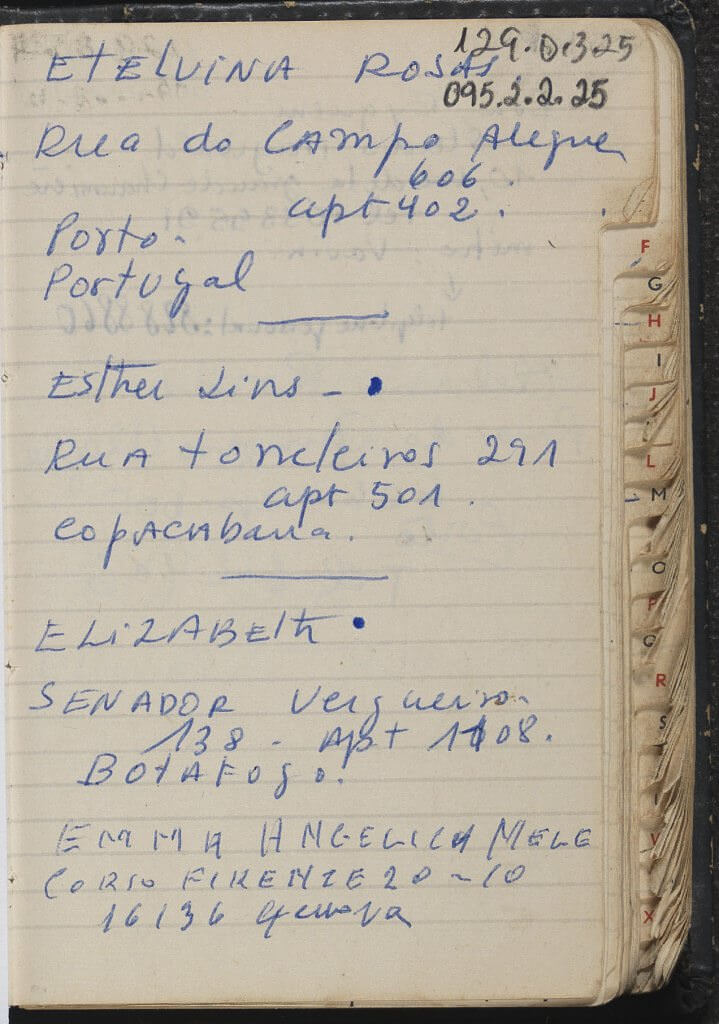 129.D.3.25
ETELVINA ROSAS
095.2.2.25
Rua do CAMPO Alegre
606.
apt 402.
Porto.
Portugal
Esther Lins -
RUA toneleiros 291
apt 501.
COPACAbana.
ELIZABETh
SENADOR Vergueiro.
138 - Apt 1108.
BOTAFOgo.
EMMA ANGELICA MELE
CORSO FIRENZE 20-10
16136 Genova
F
G
H
I
J
L
M
O
P
R
S
V
X